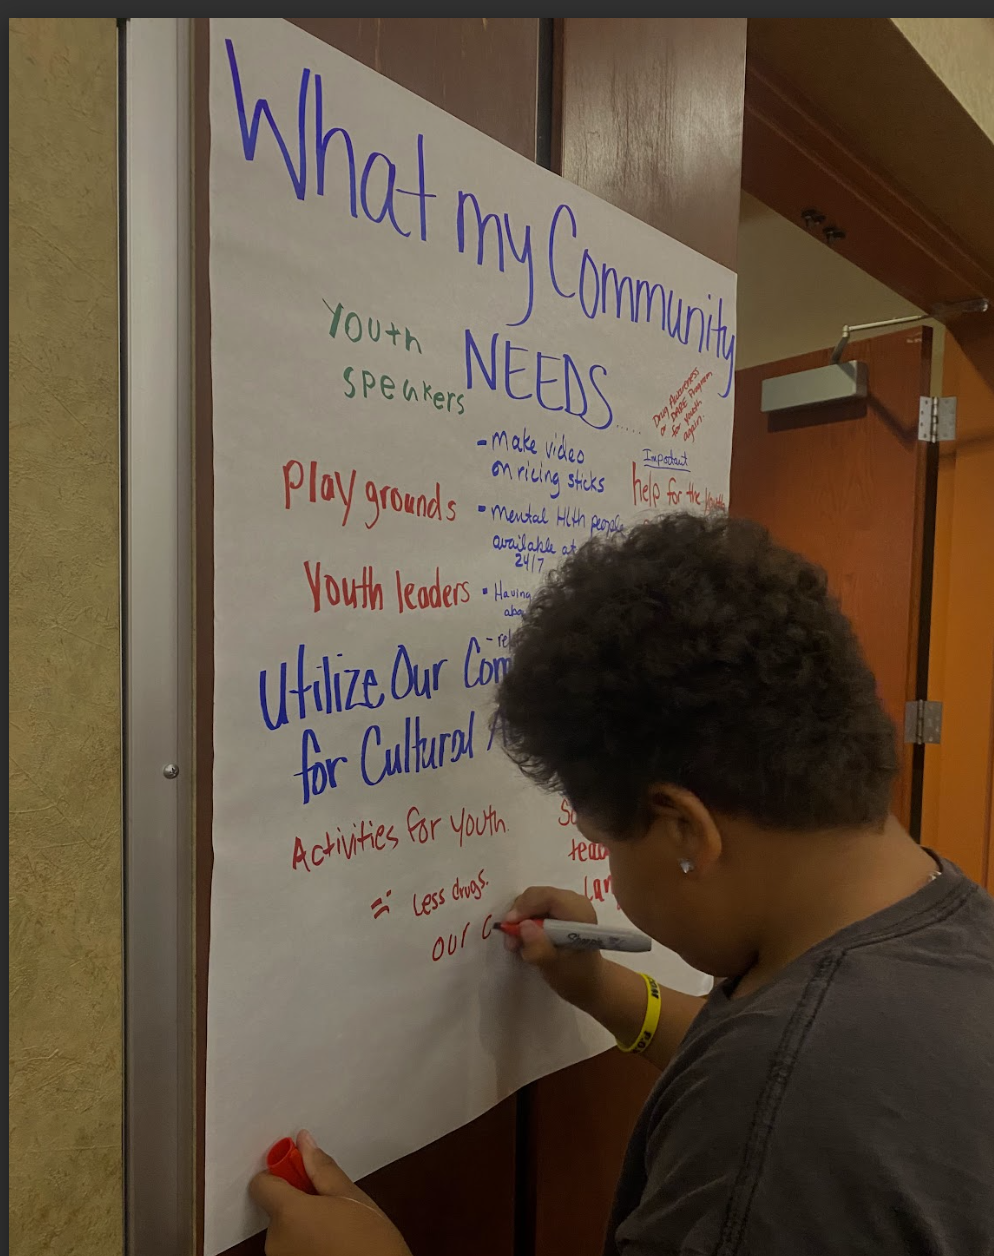 What my Community
NEEDS.....
Youth
speakers
Drug Awareness
or DARE Program
for Youth
again.
- make video
on ricing sticks
Important
help for the
Play grounds
- mental Hlth people
available at
24/7
Youth leaders
- Having
Utilize Our
for Cultural
Activities for youth.
= Less drugs.
our c
Sharpie